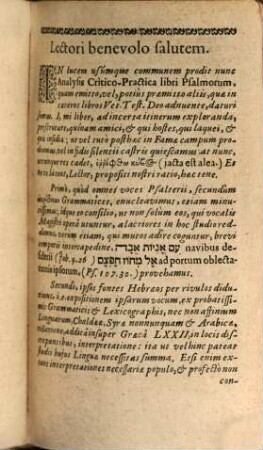 Lectori benevolo salutem.
IN lucem usumque communem prodit nunc
Analysis Critico-Practica libri Psalmorum,
quam emisso, vel, potius præmisso aliis, quæ in
cæteros libros Vet. Test. Deo adnuente, daturi
sumus. I, mi liber, ad incerta itinerum exploranda,
pestratus, quinam amici, & qui hostes, qui laquei, & quæ
insidiæ; ut vel tuto post hac in Famæ campum prode-
amus vel in fidæ silentii castris quiescamus: at nunc,
utcunque res cadet, (jacta est alea.) Es-
to in lucem, Lector, propositi nostri ratio, hac tene.
Primò, quòd omnes voces Psalterii, secundùm
ingenium Grammatices, enucleavimus, etiam minu-
tissimas; idque eo consilio, ut non solum eos, qui vocalis
Magistri operâ utuntur, alacriores in hoc studio redda-
mus, verùm etiam, quo muros adire coguntur, brevi
temporis intercapedine, עם אניות אבה navibus de-
siderii (Job. 9. 26) אל מחוז חפצם ad portum oblecta-
tionis ipsorum, (Ps. 107. 30.) provehamus.
Secundò, ipsos fontes Hebræos per rivulos didu-
ximus, i. e. expositionem ipsarum vocum, ex probatissi-
mis Grammaticis & Lexicographis, nec non affinium
Linguarum, Chaldææ, Syræ nonnunquam & Arabicæ,
addidimus, addita insuper Græcâ LXXII, in locis dis-
crepantibus, interpretatione: ita ut vel hinc pateat
studii hujus Linguæ necessitas summa. Etsi enim ex-
unt interpretationes necessariæ populo, & profectò non
con-